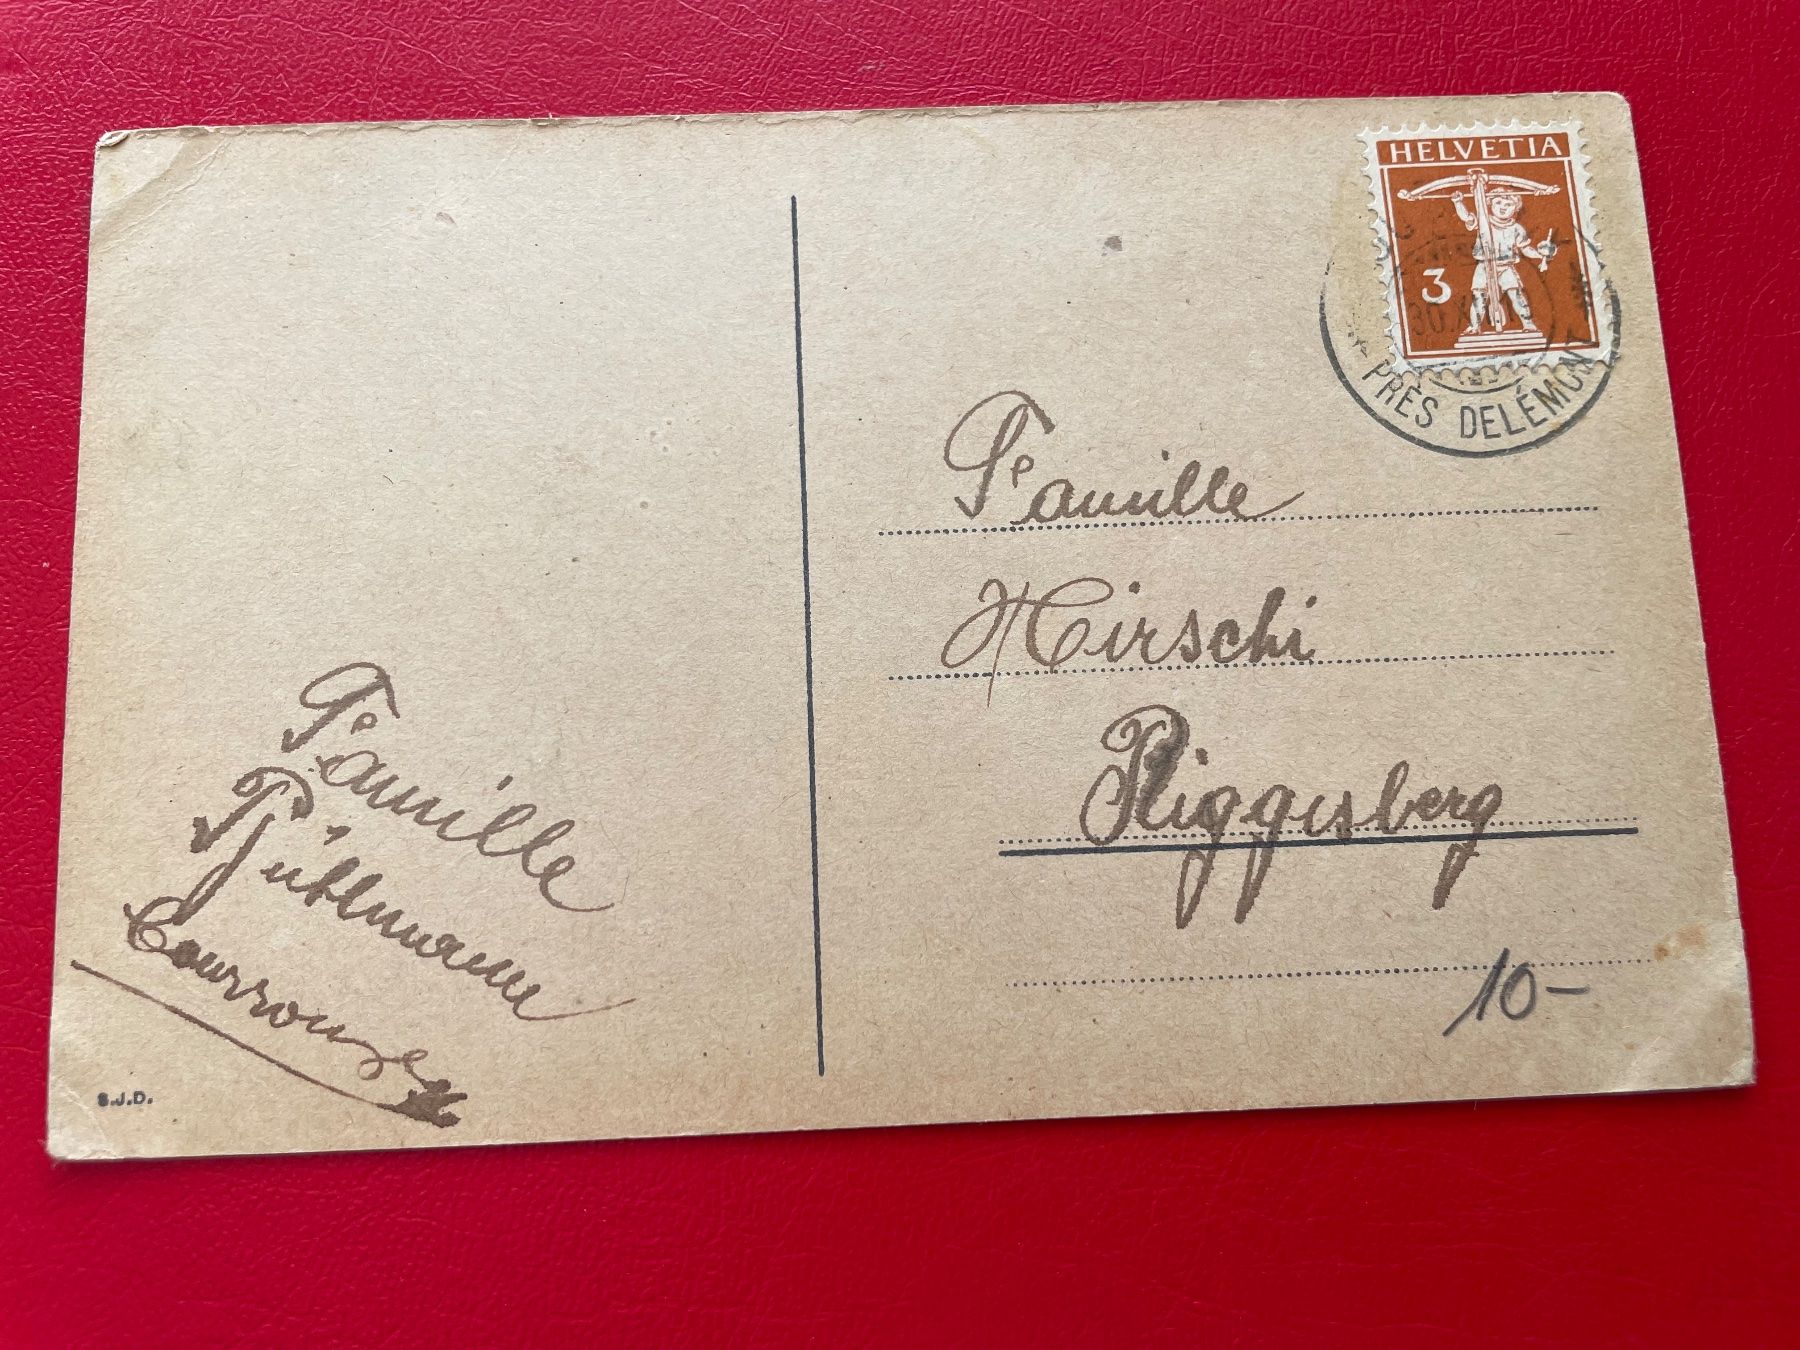 HELVETIA
3
30.XII.15
PRÈS DELÉMONT
Famille
Hirschi
Riggisberg
10-
Famille
Courroux
S.J.D.